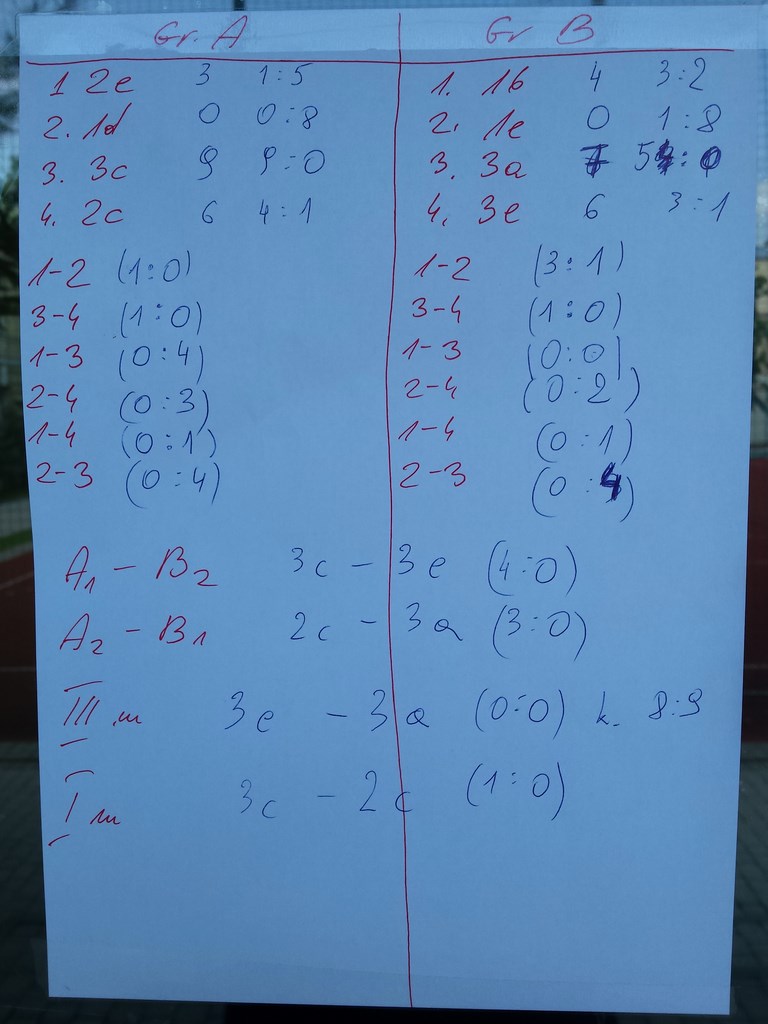 Gr. A Gr B
1 2e 3 1:5 1. 1b 4 3:2
2. 1d 0 0:8 2. 1e 0 1:8
3. 3c 9 9:0 3. 3a 7 5:0
4. 2c 6 4:1 4. 3e 6 3:1
1-2 (1:0) 1-2 (3:1)
3-4 (1:0) 3-4 (1:0)
1-3 (0:4) 1-3 (0:0)
2-4 (0:3) 2-4 (0:2)
1-4 (0:1) 1-4 (0:1)
2-3 (0:4) 2-3 (0:4)
A1 - B2 3c - 3e (4:0)
A2 - B1 2c - 3a (3:0)
III m 3e - 3a (0:0) k. 8:9
I m 3c - 2c (1:0)